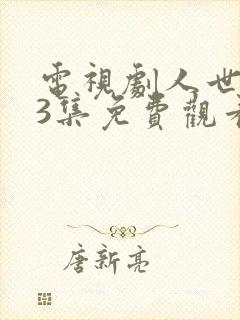 電視劇人世
3集免費觀看
唐新亮